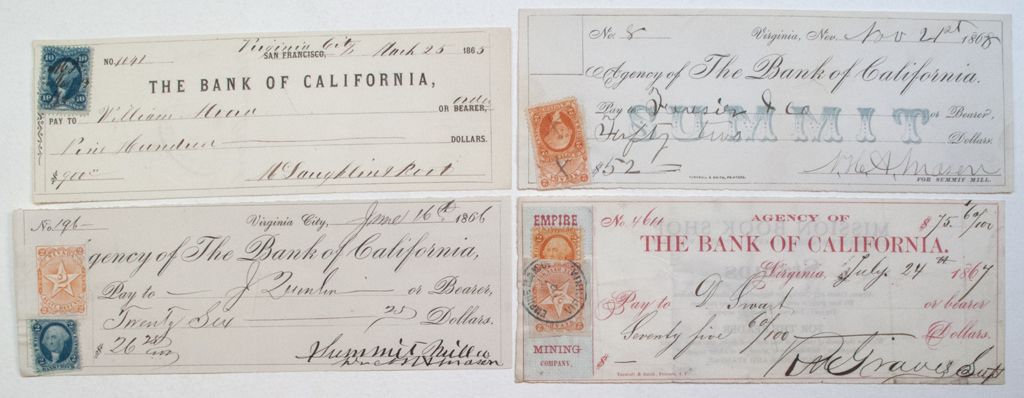 Virginia City March 25 1865
SAN FRANCISCO,
NO. 1091
THE BANK OF CALIFORNIA,
PAY TO William Hood OR BEARER, order
Nine Hundred DOLLARS.
$900
McLaughlin & Root
No. 8 Virginia, Nov. Nov 21st 1865
Agency of The Bank of California.
Pay to or Bearer,
SUMMIT
Fifty two Dollars.
$52 N. H. A. Mason
TURNBULL & SMITH, PRINTERS.
FOR SUMMIT MILL.
No. 196 Virginia City, June 16th 1866
Agency of The Bank of California,
Pay to J Quinlin or Bearer,
Twenty Six 25 Dollars.
$26 25/100 Summit Mill Co
No. 460 AGENCY OF $75 60/100
THE BANK OF CALIFORNIA.
Virginia, July 24th 1867
Pay to D Swart or bearer
Seventy five 60/100 Dollars.
$ R Graves Supt
Turnbull & Smith, Printers, S. F.
EMPIRE
MINING
COMPANY.